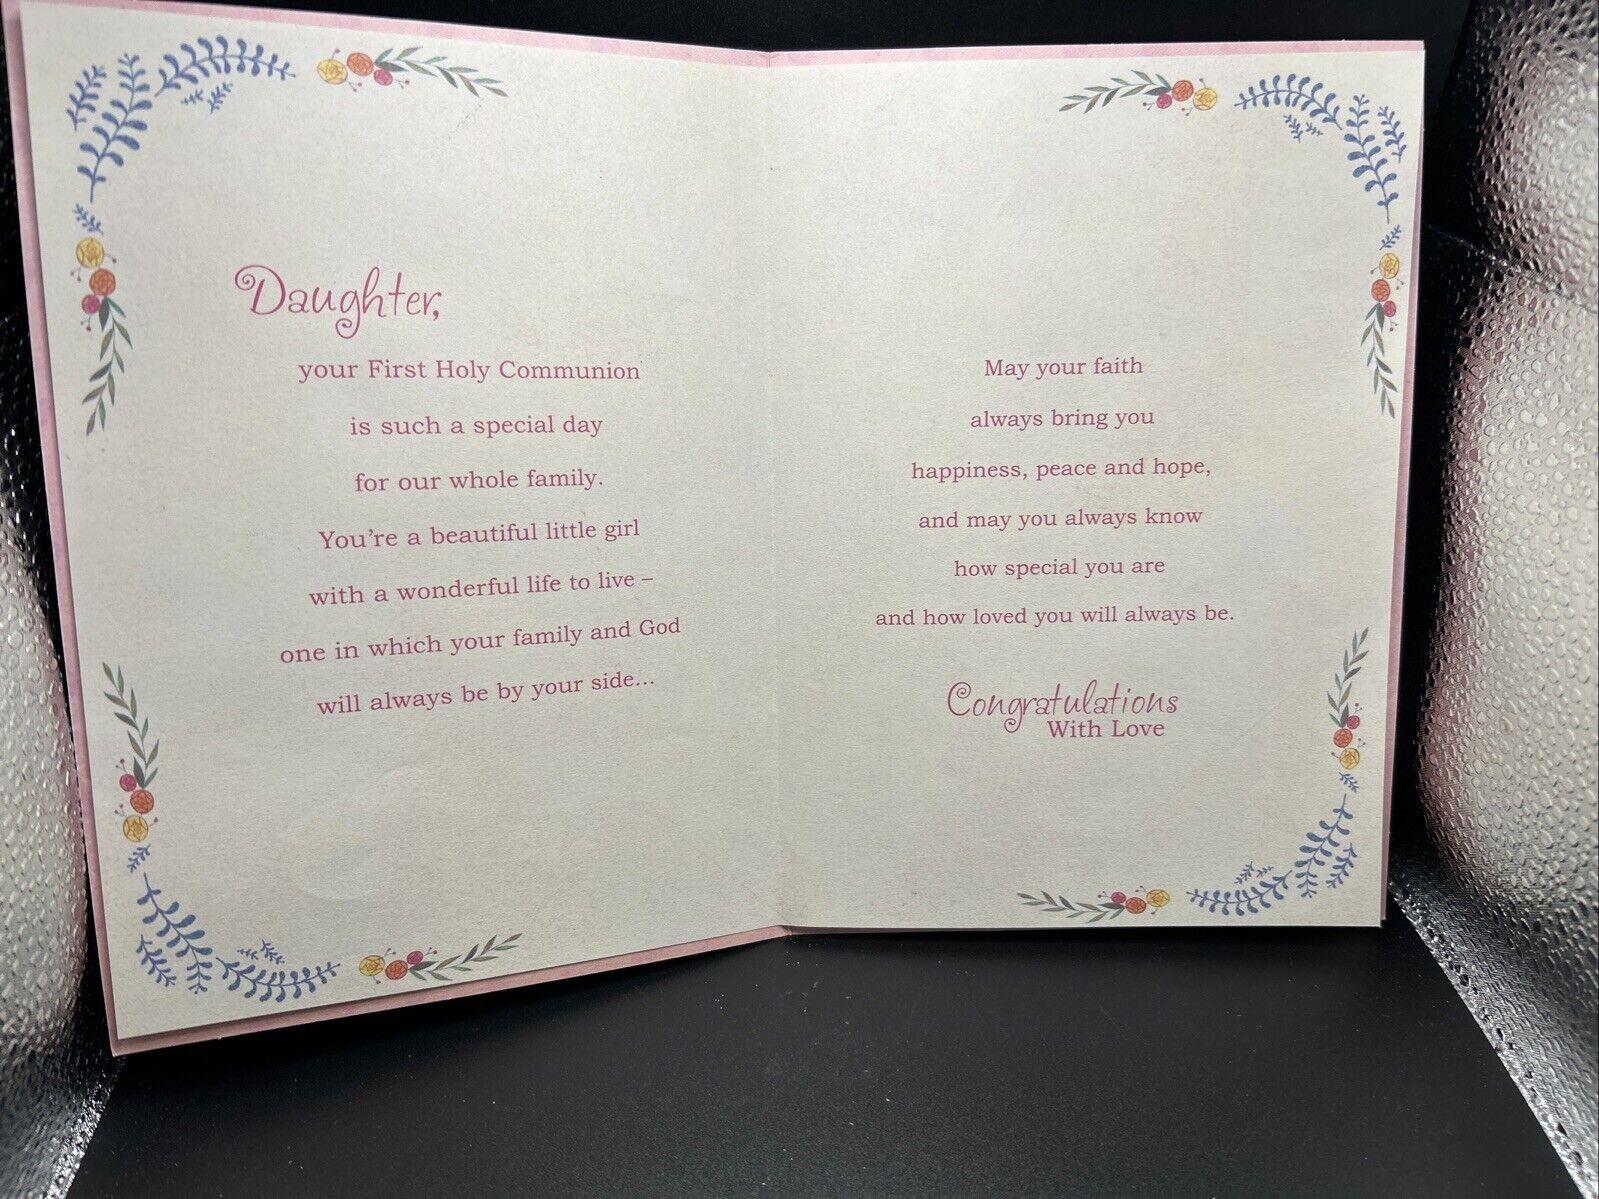 Daughter,
your First Holy Communion
is such a special day
for our whole family.
You're a beautiful little girl
with a wonderful life to live –
one in which your family and God
will always be by your side...
May your faith
always bring you
happiness, peace and hope,
and may you always know
how special you are
and how loved you will always be.
Congratulations
With Love